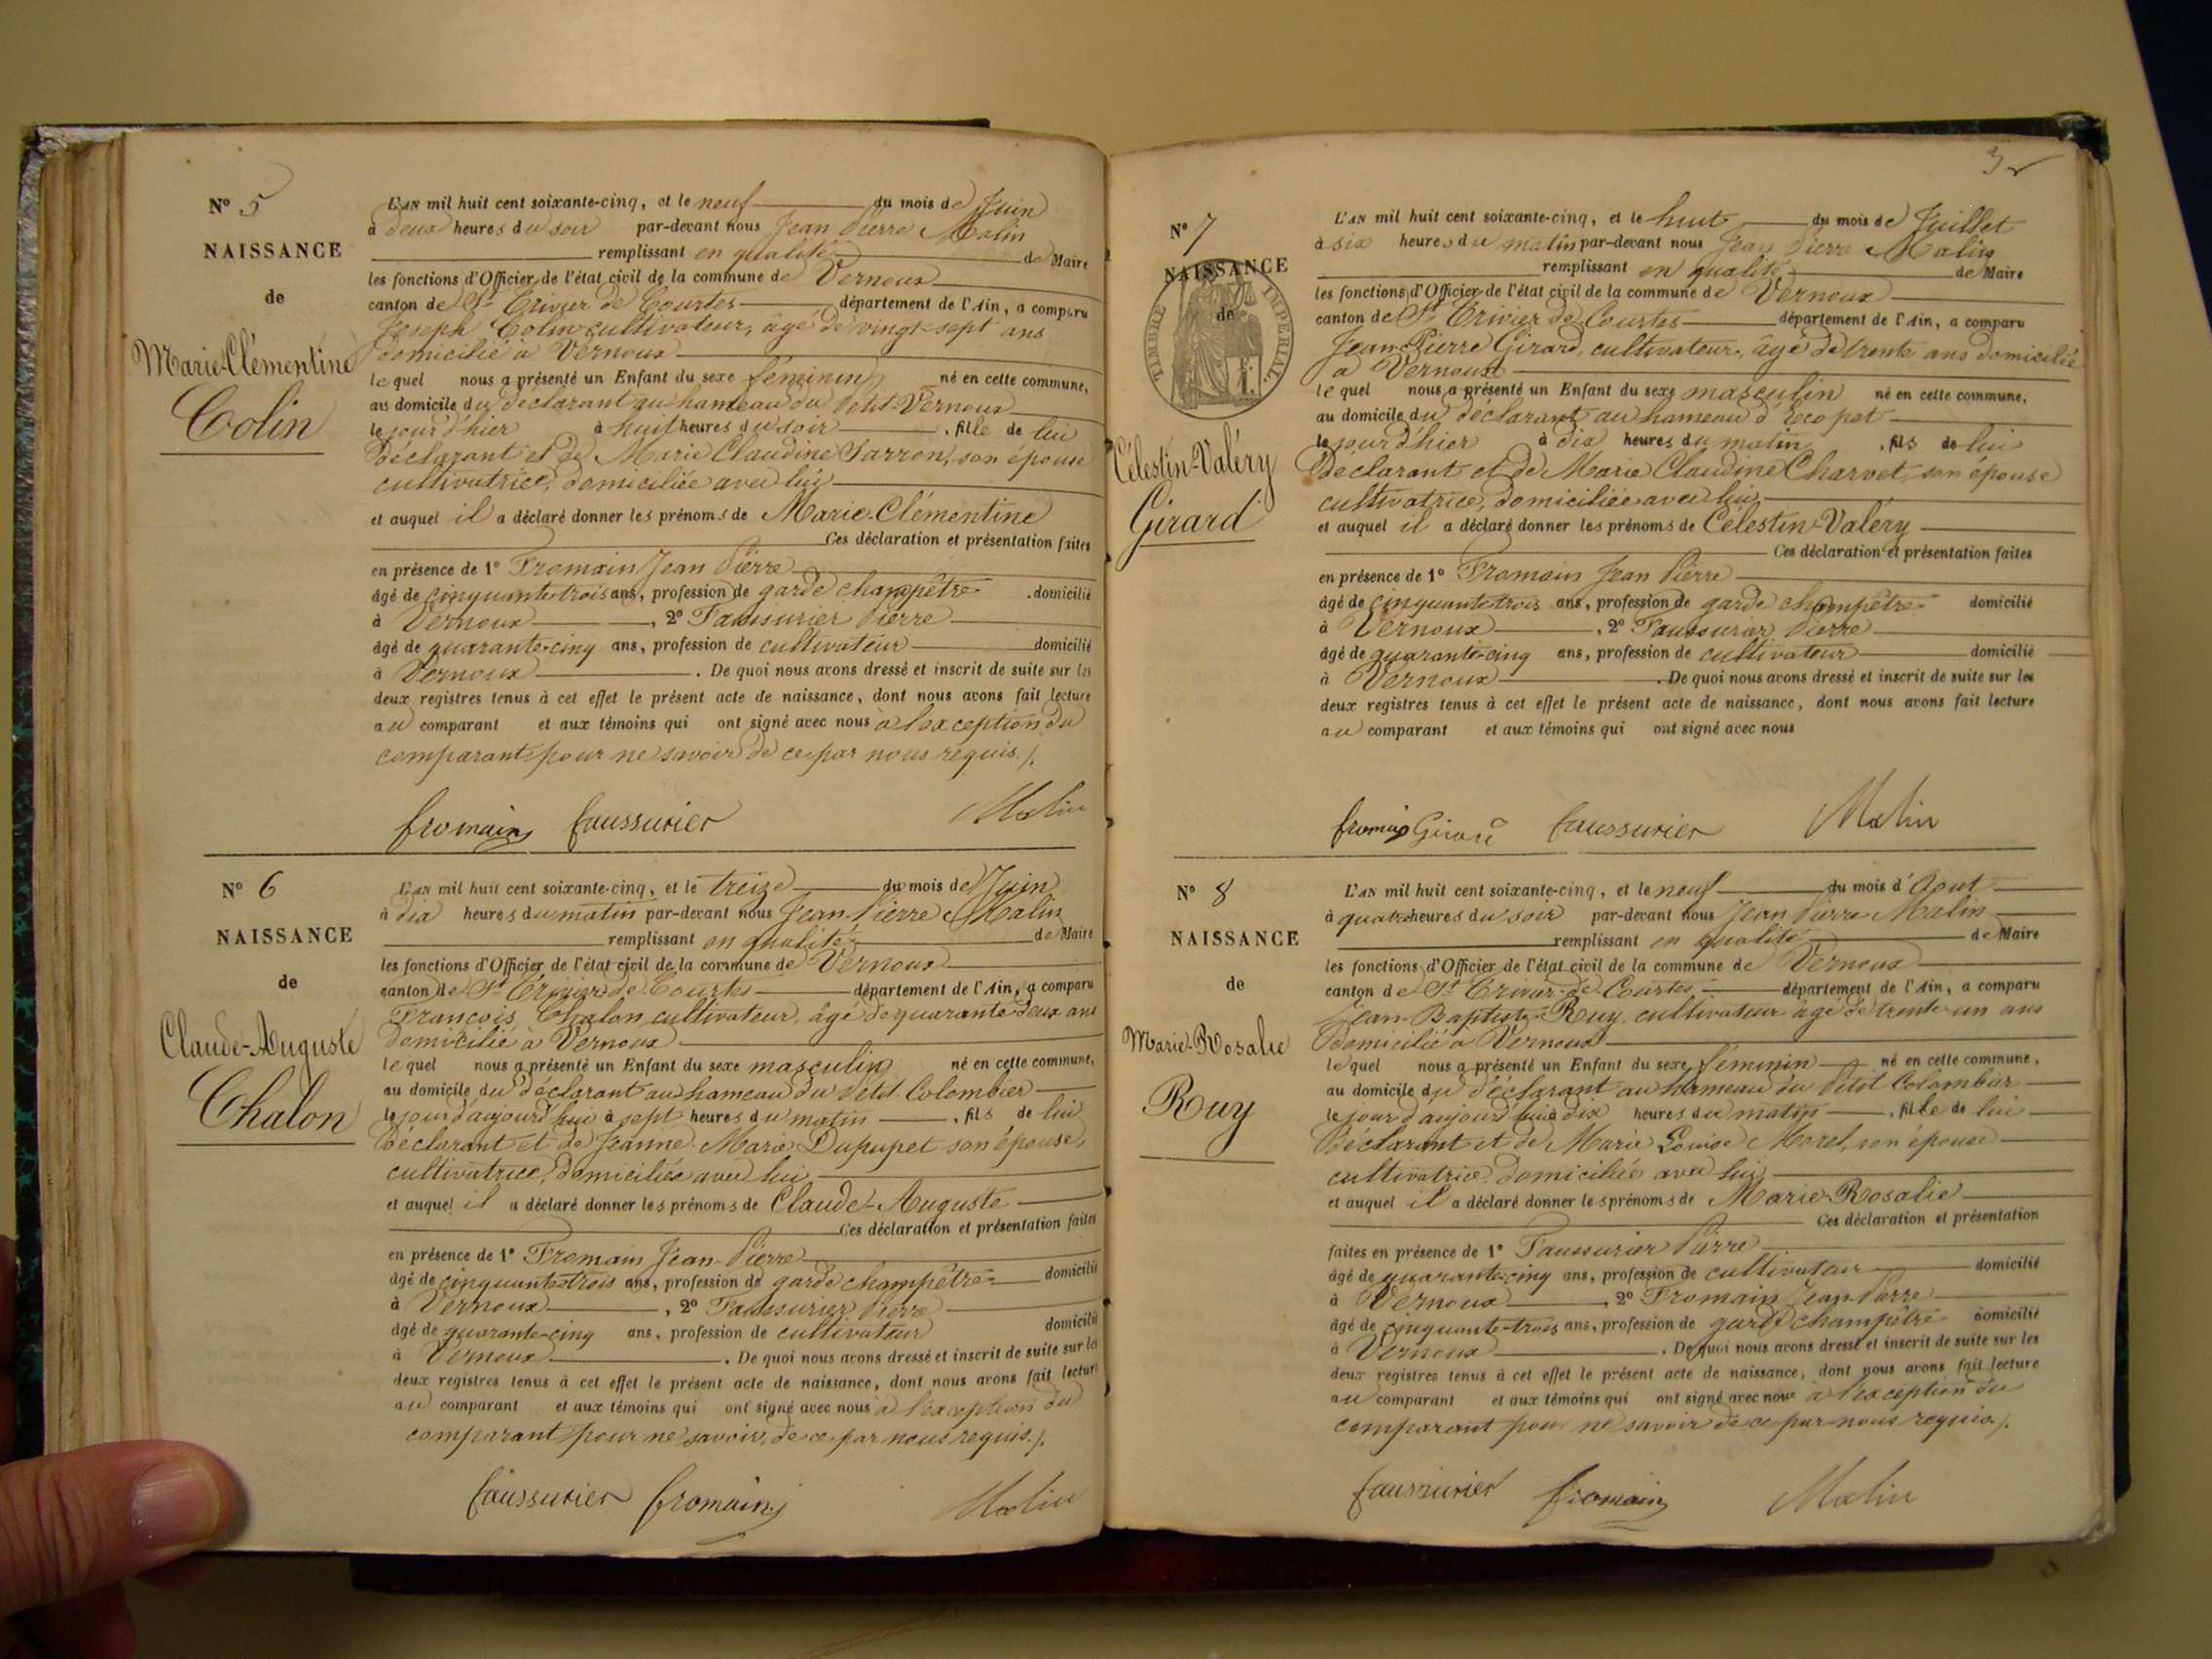 N° 5
NAISSANCE
de
Marie-Clémentine
Colin
L'AN mil huit cent soixante-cinq, et le neuf du mois de Juin
à deux heures du soir par-devant nous Jean Pierre Malin
remplissant en qualité de Maire
les fonctions d'Officier de l'état civil de la commune de Vernoux
canton de St Trivier de Courtes département de l'Ain, a comparu
Joseph Colin cultivateur, âgé de vingt-sept ans
domicilié à Vernoux
lequel nous a présenté un Enfant du sexe féminin né en cette commune,
au domicile du déclarant au hameau du Petit-Vernoux
le jour d'hier à huit heures du soir , fille de lui
déclarant et de Marie Claudine Sarron, son épouse
cultivatrice, domiciliée avec lui
et auquel il a déclaré donner les prénoms de Marie-Clémentine
Ces déclaration et présentation faites
en présence de 1° Fromain Jean Pierre
âgé de cinquante-trois ans, profession de garde champêtre domicilié
à Vernoux , 2° Faussurier Pierre
âgé de quarante-cinq ans, profession de cultivateur domicilié
à Vernoux . De quoi nous avons dressé et inscrit de suite sur les
deux registres tenus à cet effet le présent acte de naissance, dont nous avons fait lecture
au comparant et aux témoins qui ont signé avec nous à l'exception du
comparant pour ne savoir de ce par nous requis ./.
fromain faussurier Malin
N° 6
NAISSANCE
de
Claude-Auguste
Chalon
L'AN mil huit cent soixante-cinq, et le treize du mois de Juin
à dix heures du matin par-devant nous Jean-Pierre Malin
remplissant en qualité de Maire
les fonctions d'Officier de l'état civil de la commune de Vernoux
canton de St Trivier de Courtes département de l'Ain, a comparu
François Chalon cultivateur, âgé de quarante deux ans
domicilié à Vernoux
lequel nous a présenté un Enfant du sexe masculin né en cette commune,
au domicile du déclarant au hameau du Petit Colombier
le jour d'aujourd'hui à sept heures du matin , fils de lui
déclarant et de Jeanne-Marie Dupupet son épouse,
cultivatrice, domiciliée avec lui
et auquel il a déclaré donner les prénoms de Claude-Auguste
Ces déclaration et présentation faites
en présence de 1° Fromain Jean-Pierre
âgé de cinquante-trois ans, profession de garde champêtre domicilié
à Vernoux , 2° Faussurier Pierre
âgé de quarante-cinq ans, profession de cultivateur domicilié
à Vernoux . De quoi nous avons dressé et inscrit de suite sur les
deux registres tenus à cet effet le présent acte de naissance, dont nous avons fait lecture
au comparant et aux témoins qui ont signé avec nous à l'exception du
comparant pour ne savoir, de ce par nous requis ./.
faussurier fromain Malin
3
N° 7
NAISSANCE
de
TIMBRE IMPÉRIAL
Célestin-Valéry
Girard
L'AN mil huit cent soixante-cinq, et le huit du mois de Juillet
à six heures du matin par-devant nous Jean Pierre Malin
remplissant en qualité de Maire
les fonctions d'Officier de l'état civil de la commune de Vernoux
canton de St Trivier de Courtes département de l'Ain, a comparu
Jean-Pierre Girard, cultivateur, âgé de trente ans domicilié
à Vernoux
lequel nous a présenté un Enfant du sexe masculin né en cette commune,
au domicile du déclarant au hameau d'Ecopet
le jour d'hier à dix heures du matin , fils de lui
déclarant et de Marie Claudine Charvet, son épouse
cultivatrice, domiciliée avec lui
et auquel il a déclaré donner les prénoms de Célestin-Valéry
Ces déclaration et présentation faites
en présence de 1° Fromain Jean Pierre
âgé de cinquante-trois ans, profession de garde champêtre domicilié
à Vernoux , 2° Faussurier Pierre
âgé de quarante-cinq ans, profession de cultivateur domicilié
à Vernoux . De quoi nous avons dressé et inscrit de suite sur les
deux registres tenus à cet effet le présent acte de naissance, dont nous avons fait lecture
au comparant et aux témoins qui ont signé avec nous
fromain Girard faussurier Malin
N° 8
NAISSANCE
de
Marie-Rosalie
Ruy
L'AN mil huit cent soixante-cinq, et le neuf du mois d'Aout
à quatre heures du soir par-devant nous Jean Pierre Malin
remplissant en qualité de Maire
les fonctions d'Officier de l'état civil de la commune de Vernoux
canton de St Trivier-de-Courtes département de l'Ain, a comparu
Jean-Baptiste Ruy, cultivateur âgé de trente-un ans
domicilié à Vernoux
lequel nous a présenté un Enfant du sexe féminin né en cette commune,
au domicile du déclarant au hameau du Petit Colombier
le jour d'aujourd'hui à dix heures du matin , fille de lui
déclarant et de Marie Louise Morel, son épouse
cultivatrice domiciliée avec lui
et auquel il a déclaré donner les prénoms de Marie-Rosalie
Ces déclaration et présentation
faites en présence de 1° Faussurier Pierre
âgé de quarante-cinq ans, profession de cultivateur domicilié
à Vernoux , 2° Fromain Jean-Pierre
âgé de cinquante-trois ans, profession de garde champêtre domicilié
à Vernoux . De quoi nous avons dressé et inscrit de suite sur les
deux registres tenus à cet effet le présent acte de naissance, dont nous avons fait lecture
au comparant et aux témoins qui ont signé avec nous à l'exception du
comparant pour ne savoir de ce par nous requis ./.
faussurier fromain Malin